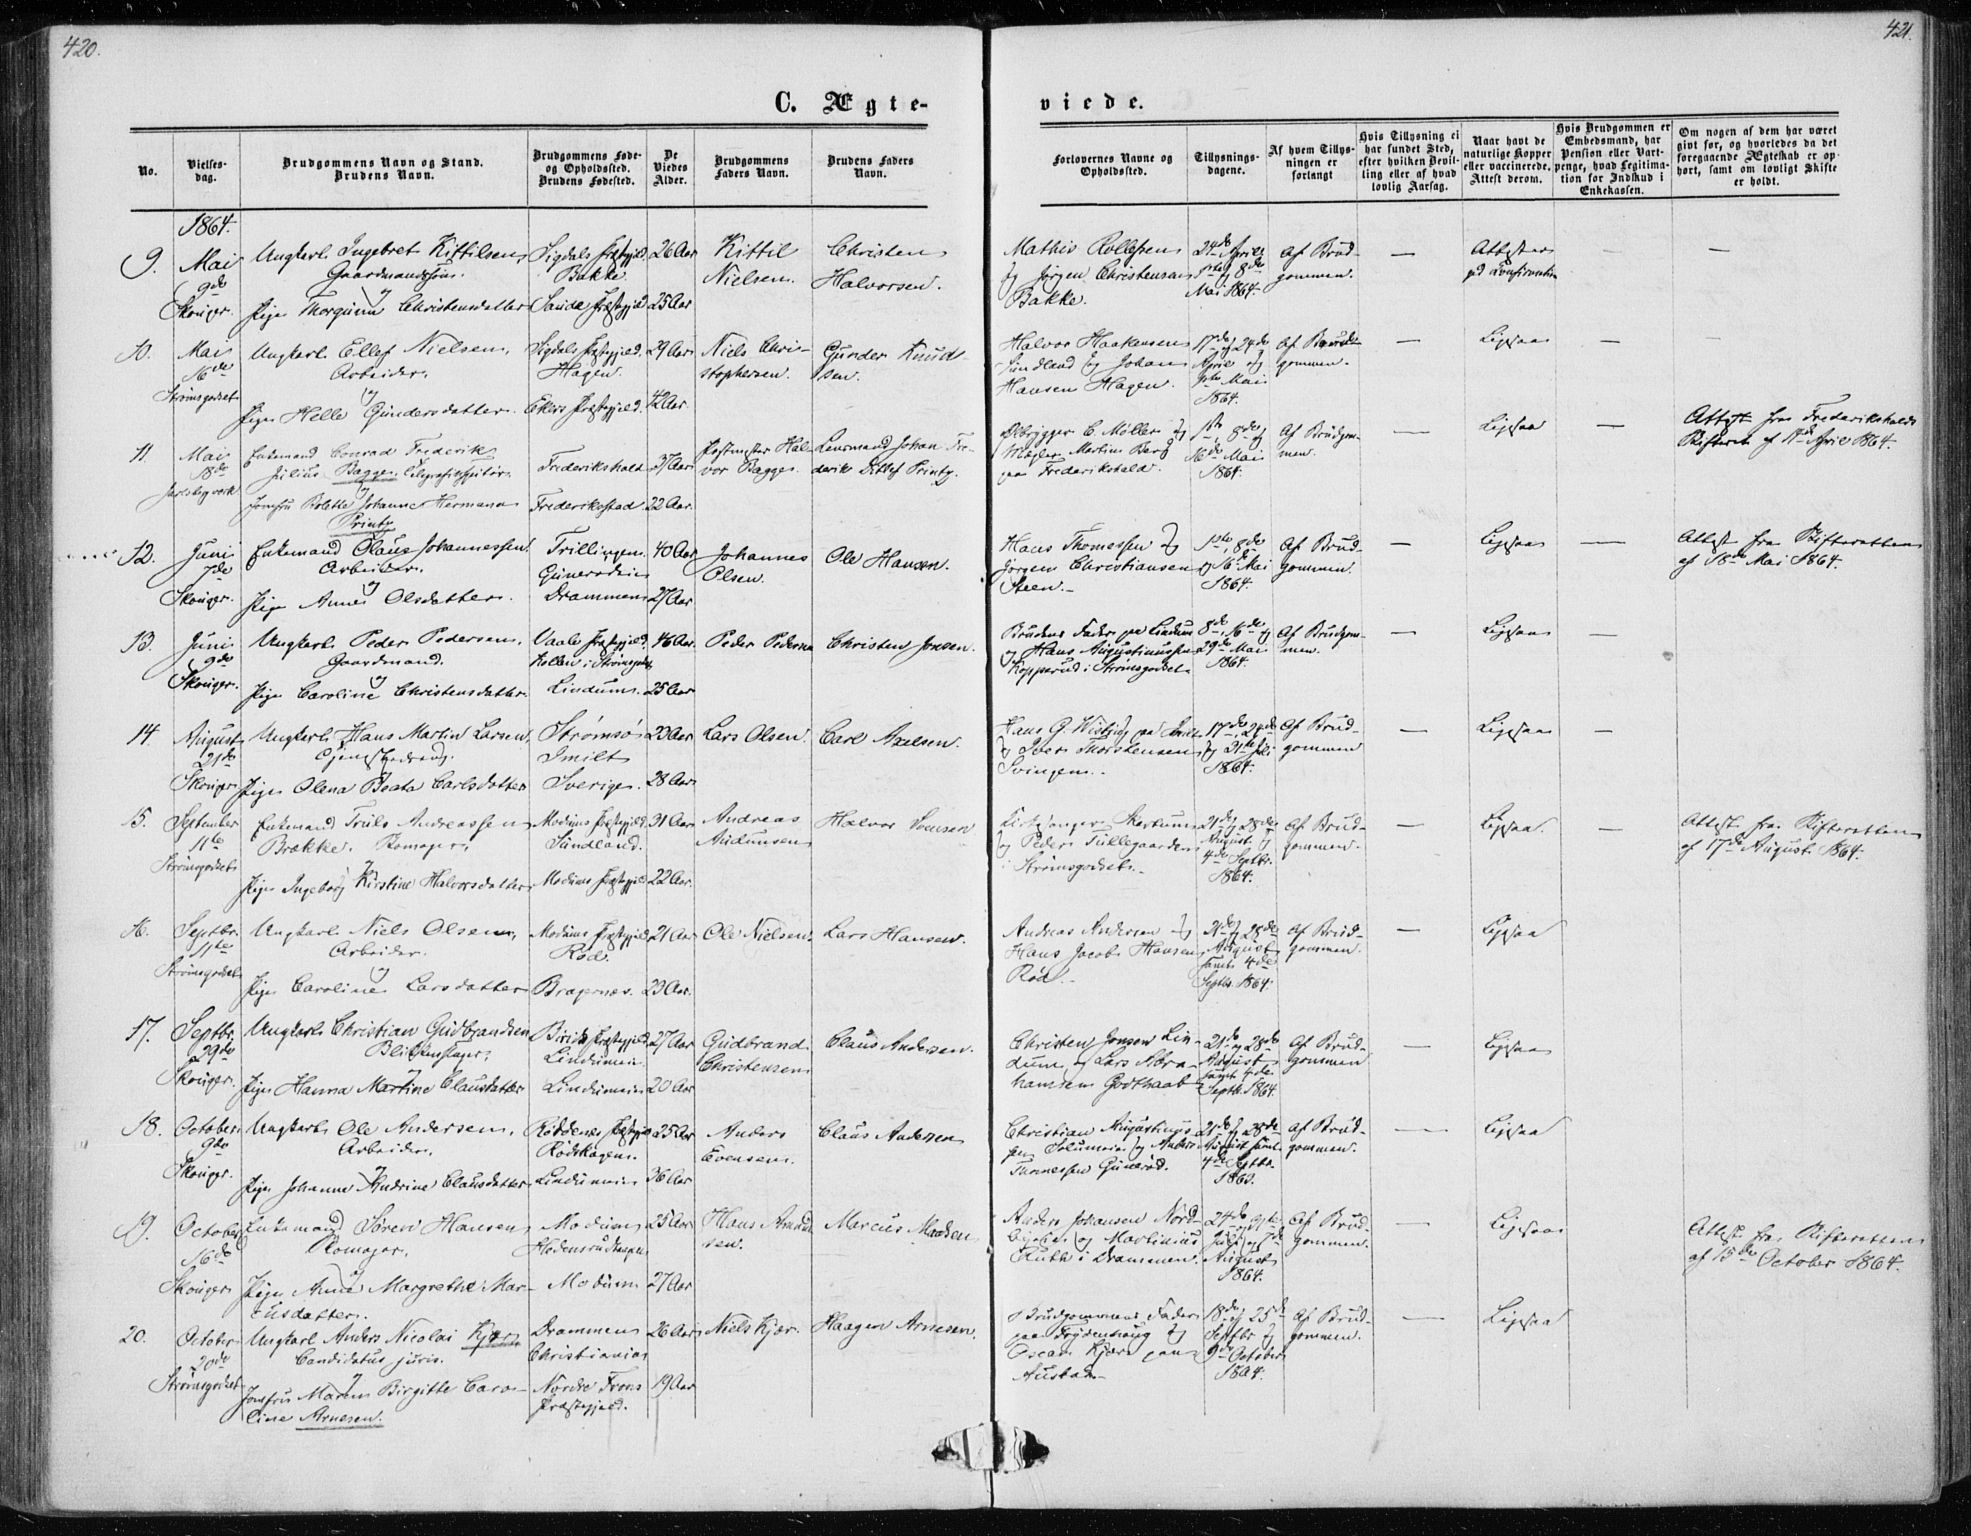 420.
421.
C. Ægte-
viede.
No.
Vielses-
dag.
Brudgommens Navn og Stand.
Brudens Navn.
Brudgommens Føde-
og Opholdssted.
Brudens Fødested.
De
Viedes
Alder.
Brudgommens
Faders Navn.
Brudens Faders
Navn.
Forlovernes Navne og
Opholdssted.
Tillysnings-
dagene.
Af hvem Tillys-
ningen er
forlangt
Hvis Tillysning ei
har fundet Sted,
efter hvilken Bevil-
ling eller af hvad
lovlig Aarsag.
Naar havt de
naturlige Kopper
eller vaccinerede.
Attest derom.
Hvis Brudgommen er
Embedsmand, har
Pension eller Vart-
penge, hvad Legitima-
tion for Indskud i
Enkekassen.
Om nogen af dem har været
gift før, og hvorledes da det
foregaaende Ægteskab er op-
hørt, samt om lovligt Skifte
er holdt.
1864.
9. Mai 9de Skouger.
Ungkarl Ingebret Kittilsen
Gaardmandssøn.
og
Pige Thorgunn Christensdatter
Sigdals Præstegjeld.
Bakke.
Sande Præstegjeld
26 Aar
25 Aar.
Kittil
Nielsen.
Christen
Halvorsen.
Mathis Rollefsen
og Jørgen Christensen
Bakke.
24de April
1ste og 8de
Mai 1864.
Af Brud-
gommen.
—
Attester
—
—
10. Mai 16de Strømsgodset
Ungkarl Ellef Nielsen,
Arbeider.
og
Pige Helle Gundersdatter.
Sigdals Præstegjeld.
Hagen.
Ekers Præstegjeld.
29 Aar
42 Aar.
Niels Chris-
stophersen.
Gunder Knud-
sen.
Halvor Haakensen
Sundland og Johan
Hansen Hagen.
17de og 24de
April og
1ste Mai
1864.
Af Brud-
gommen.
—
Ligesaa
—
11. Mai 18de
Enkemand Conrad Frederik
Julius Bagger,
og
Jomfru Bolette Johanne Hermana
Printz
Frederikshald
Frederiksstad
37 Aar
22 Aar.
Postmester Hal-
vor Bagger.
Lensmand Johan Fre-
derik Ditlef Printz.
Ølbrygger C. Møller og
Mægler Martin Berg
paa Frederikshald.
1ste, 8de og
16de Mai
1864.
Af Brudgom-
men.
—
Ligesaa
—
Attest fra Frederikshalds
Skifteret af 11te April 1864.
12. Juni 7de Skouger.
Enkemand Olaus Johannessen
Arbeider.
og
Pige Anne Olsdatter.
Trillingen
Drammen
40 Aar
27 Aar
Johannes
Olsen.
Ole Hansen.
Hans Thomessen og
Jørgen Christiansen
Steen.
1ste, 8de
og 16de Mai
1864.
Af Brud-
gommen.
—
Ligesaa
—
Attest fra Skifteretten
af 18de Mai 1864.
13. Juni 9de Skouger.
Ungkarl Peder Pedersen,
Gaardmand.
og
Pige Caroline Christensdatter.
Vaale Præstegjeld.
Lindum.
46 Aar.
25 Aar
Peder Pedersen
Christen Jonsen.
Brudens Fader paa Lindum
og Hans Augustinussen
Kopperud i Strømsgodset.
8de, 16de og
29de Mai
1864.
Af Brudgom-
men.
—
Ligesaa
—
14. August 21de Skouger
Ungkarl Hans Martin Larsen,
og
Pige Olena Beata Carlsdatter
Strømsø
Smilt
Sverige.
23 Aar
28 Aar
Lars Olsen.
Carl Axelsen.
Hans G.
og Iver Thorstensen
Svingen.
17de, 24de
og 31te Juli
1864.
Af Brud-
gommen
—
Ligesaa
—
15. September 11te Strømsgodset
Enkemand Truls Andreassen
Brække. Skomager,
og
Pige Ingeborg Kirstine Halvorsdatter
Modums Præstegjeld.
Sundland.
Modums Præstegjeld
31 Aar
22 Aar.
Andreas
Audunsen
Halvor Svensen
Kirkesanger
og Peder Tullegaarden
i Strømsgodset.
21de og 28de
August og
4de Septbr.
1864.
Af Brud-
gommen.
—
Ligesaa.
—
Attest fra Skifteretten
af 17de August 1864.
16. Septbr. 11te Strømsgodset
Ungkarl Niels Olsen,
Arbeider.
og
Pige Caroline Larsdatter
Modums Præstegjeld
Rød.
Bragernæs.
21 Aar
23 Aar.
Ole Nielsen.
Lars Hansen.
Andreas Andersen og
Hans Jacob Hansen
Rød.
21de og 28de
August
samt 4de
Septbr. 1864.
Af Brud-
gommen.
—
Ligesaa
17. Septbr. 29de Skouger.
Ungkarl Christian Gudbrandsen
Blikkenslager,
og
Pige Hanna Martine Clausdatter
Birids Præstegjeld
Lindumeie
Lindumeie
27 Aar
20 Aar
Gudbrand
Christensen
Claus Andersen.
Christen Jonsen Lin-
dum og Lars Abra-
hamsen Godthaab
21de og 28de
August
samt 4de
Septbr. 1864.
Af Brud-
gommen
—
Ligesaa
18. October 9de Skouger.
Ungkarl Ole Andersen,
Arbeider.
og
Pige Johanne Andrine Clausdatter
Rødenes Præstegjeld
Rødskogen.
Lindumeie
25 Aar
36 Aar
Anders
Evensen.
Claus Andersen
Christian Augustinus-
sen og Anders
21de og 28de
August samt
4de Septbr.
Af Brud-
gommen.
—
Ligesaa
19. October 16de Skouger
Enkemand Søren Hansen
Skomager.
og
Pige Anne Margrethe Mar-
cusdatter.
Modum
Modum
25 Aar
27 Aar
Hans
sen.
Marcus Madsen.
Anders Johansen Nord-
og Martinius
i Drammen.
24de og 31te
Juli og 7de
August
1864.
Af Brud-
gommen.
—
Ligesaa
Attest fra Skifteretten
af 15de October 1864.
20. October 20de Strømsgodset
Ungkarl Anders Nicolai Kjær
Candidatus juris.
og
Jomfru Maren Birgitte Caro-
line Arnesen.
Drammen
Christiania
Nordre Frons
Præstegjeld.
26 Aar
19 Aar
Niels Kjær.
Haagen Arnesen.
Brudgommens Fader
paa Frydenhaug og
Oscar Kjær paa
Austad.
18de og 25de
Septbr og
9de October
1864.
Af Brud-
gommen.
—
Ligesaa